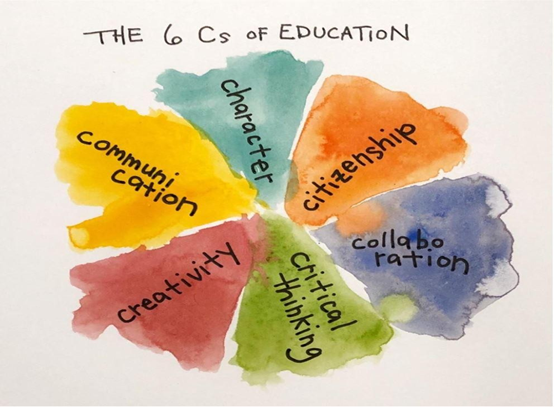 THE 6 Cs OF EDUCATION
character
citizenship
collabo
ration
critical
thinking
creativity
communi
cation